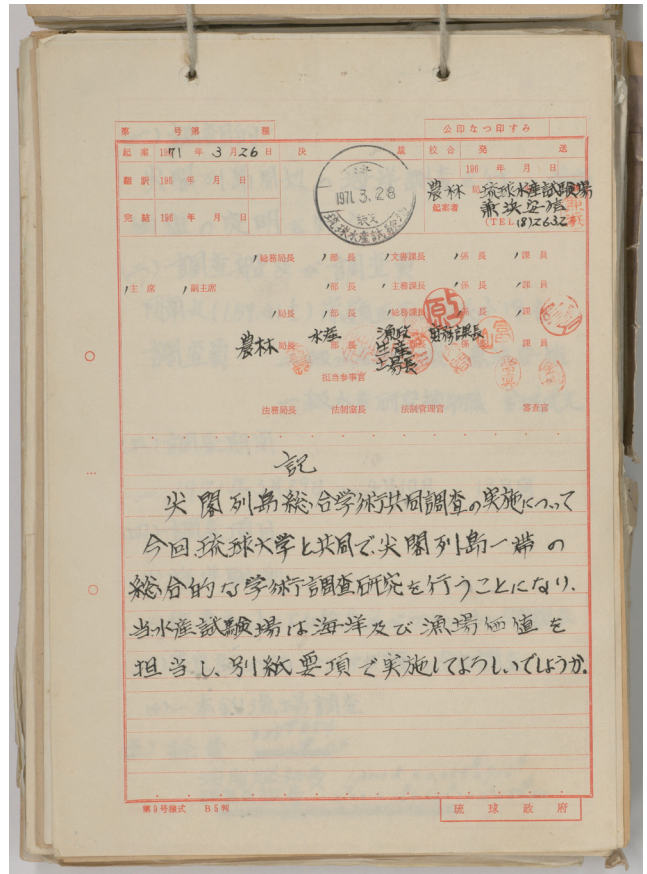 第　号第　種
公印なつ印すみ
起案 1971年3月26日
決　裁
校合　発　送
翻訳 196　年　月　日
196　年　月　日
完結 196　年　月　日
1971.3.28
琉球水産試験場
農林　局　琉球水産試験場
起案者
(TEL (8)2632)
総務局長　部長　文書課長　係長　課員
主席　副主席　部長　主務課長　係長　課員
局長　部長　総務課長　係長　課員
農林　局長　水産　部長　漁政　課長　係長　課員
生産
士場長
担当参事官
法務局長　法制室長　法制管理官　審査官
記
尖閣列島総合学術共同調査の実施について
今回、琉球大学と共同で、尖閣列島一帯の
総合的な学術調査研究を行うことになり、
当水産試験場は海洋及び漁場価値を
担当し、別紙要項で実施してよろしいでしょうか。
第9号様式　B5判
琉球政府